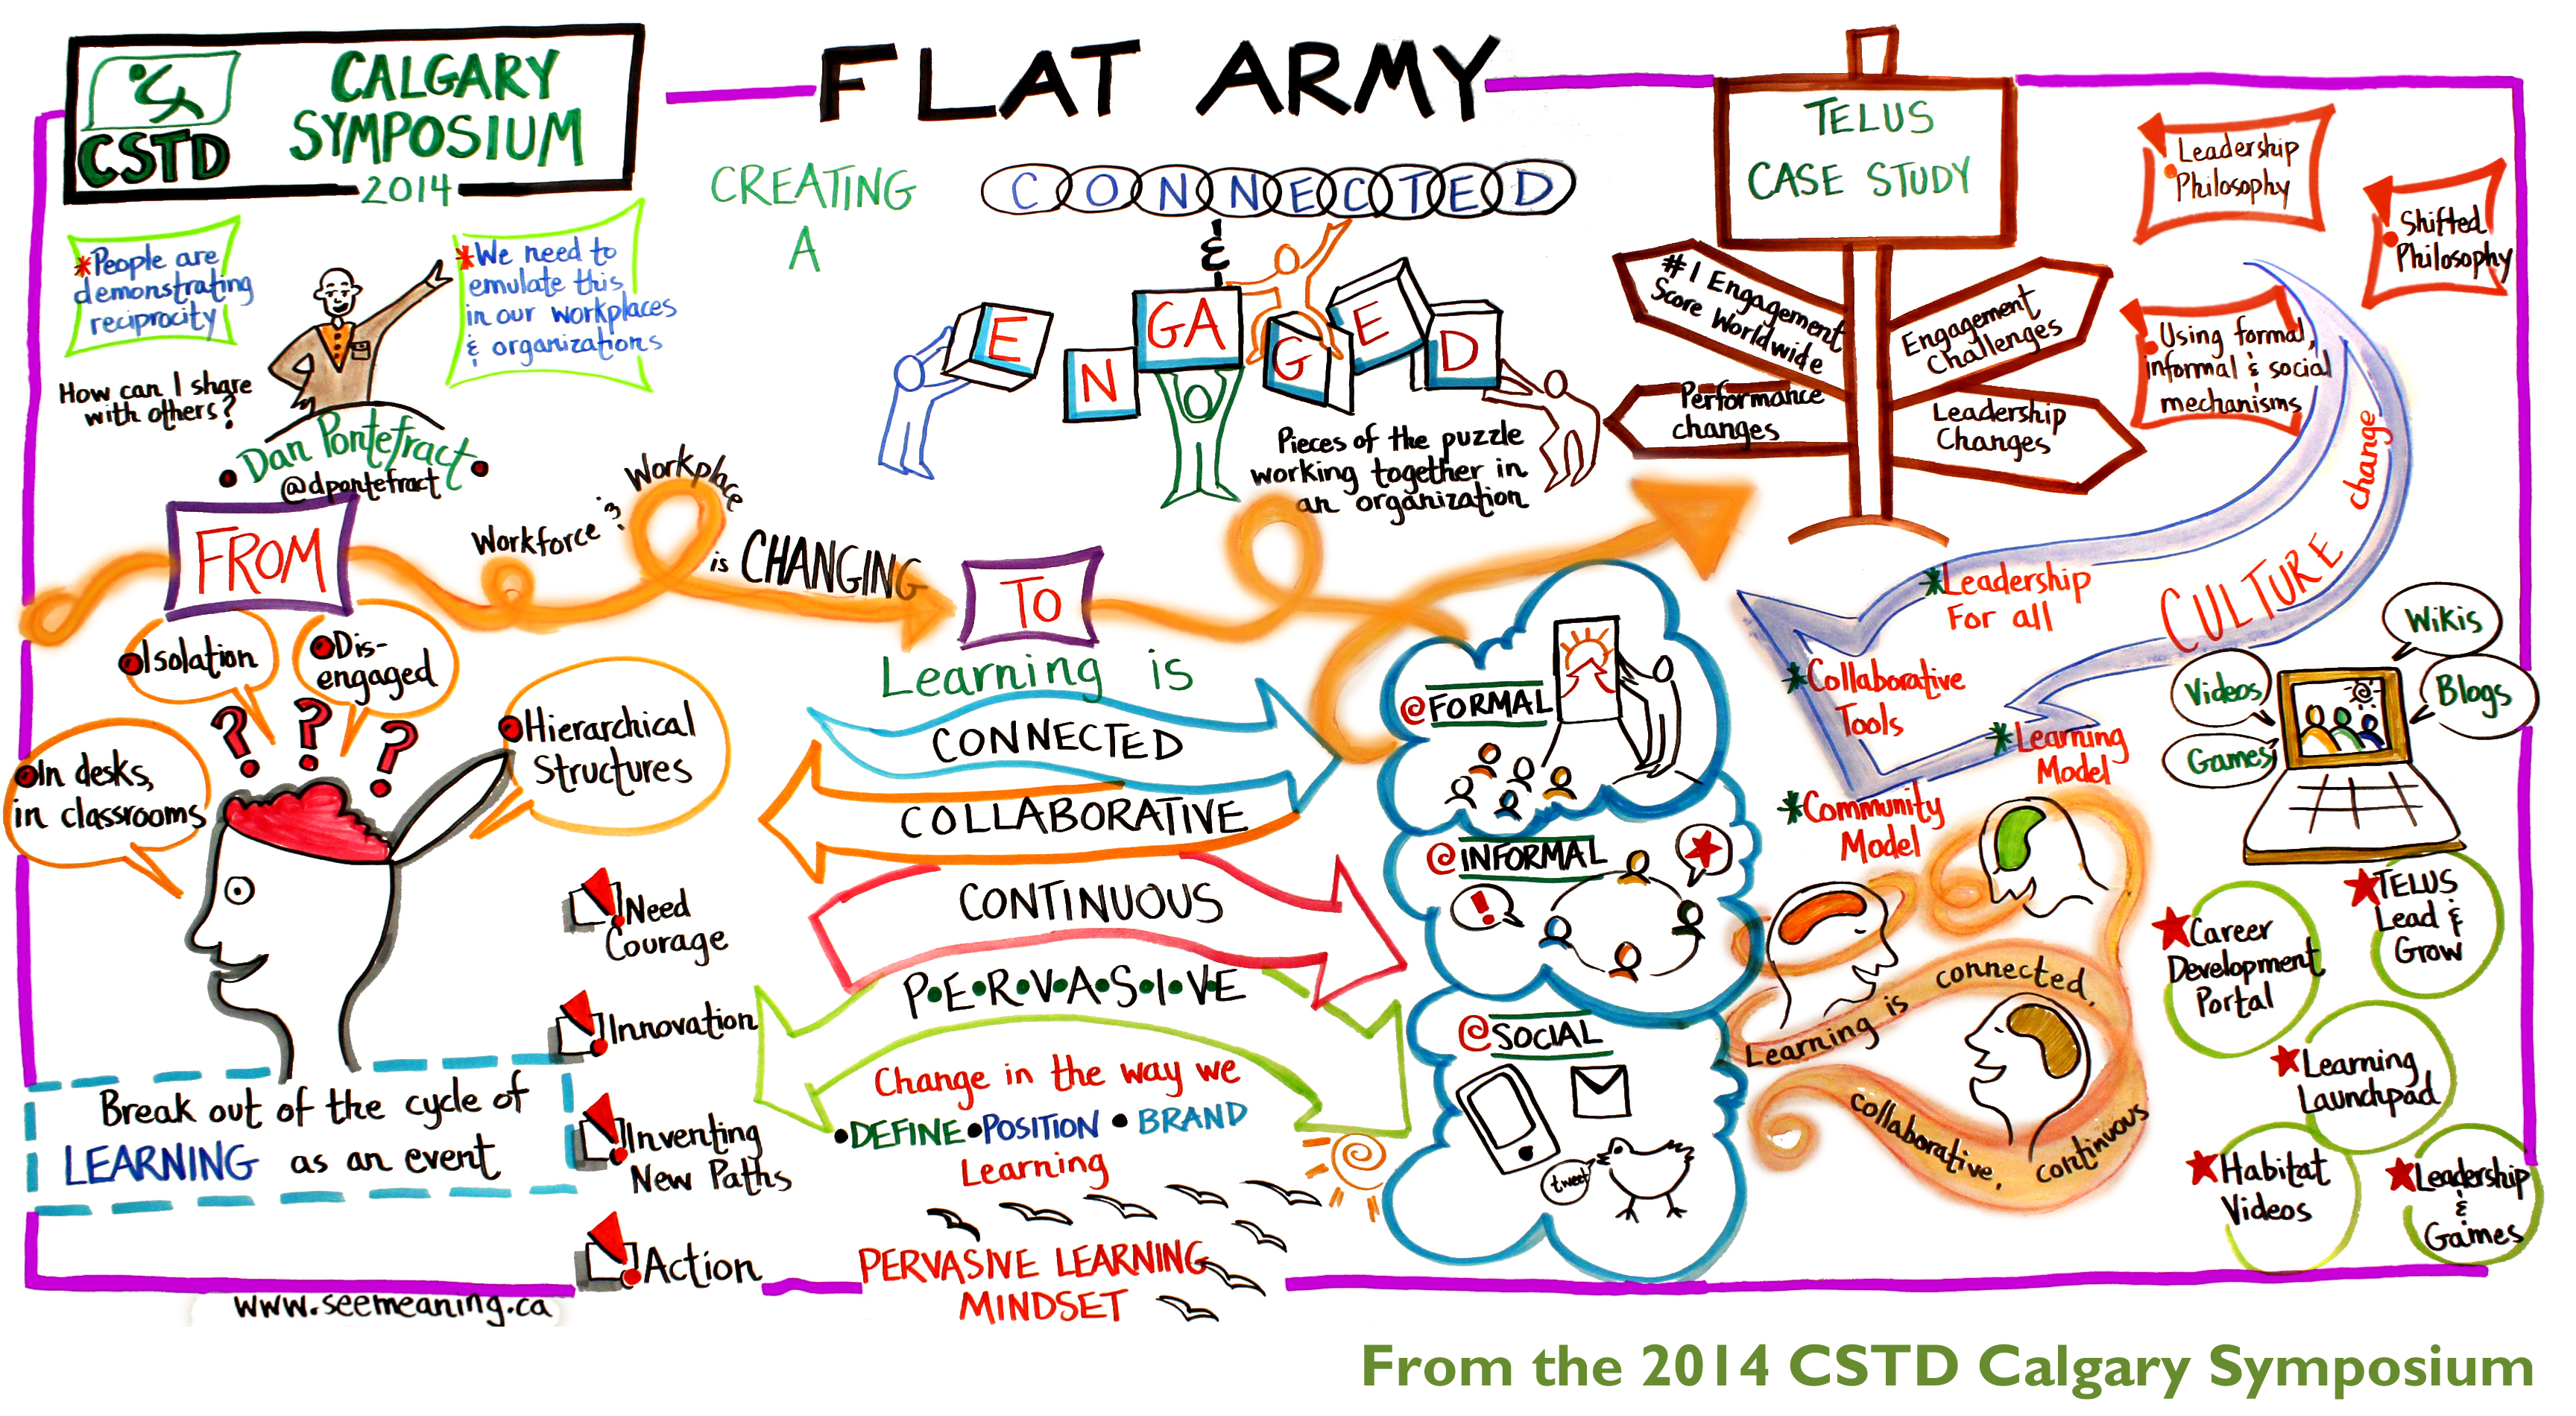 CSTD
CALGARY
SYMPOSIUM
2014
FLAT ARMY
CREATING
A
CONNECTED
&
ENGAGED
Pieces of the puzzle
working together in
an organization
*People are
demonstrating
reciprocity
*We need to
emulate this
in our workplaces
& organizations
How can I share
with others?
• Dan Pontefract •
@dpontefract
TELUS
CASE STUDY
#1 Engagement
Score Worldwide
Engagement
Challenges
Performance
changes
Leadership
Changes
Leadership
Philosophy
Shifted
Philosophy
Using formal,
informal & social
mechanisms
CULTURE change
*Leadership
For all
*Collaborative
Tools
*Learning
Model
*Community
Model
FROM
Workforce & Workplace
is CHANGING
TO
Isolation
Dis-
engaged
In desks,
in classrooms
Hierarchical
Structures
???
Break out of the cycle of
LEARNING as an event
Need
Courage
Innovation
Inventing
New Paths
Action
Learning is
CONNECTED
COLLABORATIVE
CONTINUOUS
P•E•R•V•A•S•I•V•E
Change in the way we
•DEFINE•POSITION•BRAND
Learning
PERVASIVE LEARNING
MINDSET
@FORMAL
@INFORMAL
!
@SOCIAL
tweet
Learning is connected,
collaborative, continuous
Wikis
Videos
Blogs
Games
TELUS
Lead &
Grow
Career
Development
Portal
Learning
Launchpad
Habitat
Videos
Leadership
&
Games
www.seemeaning.ca
From the 2014 CSTD Calgary Symposium